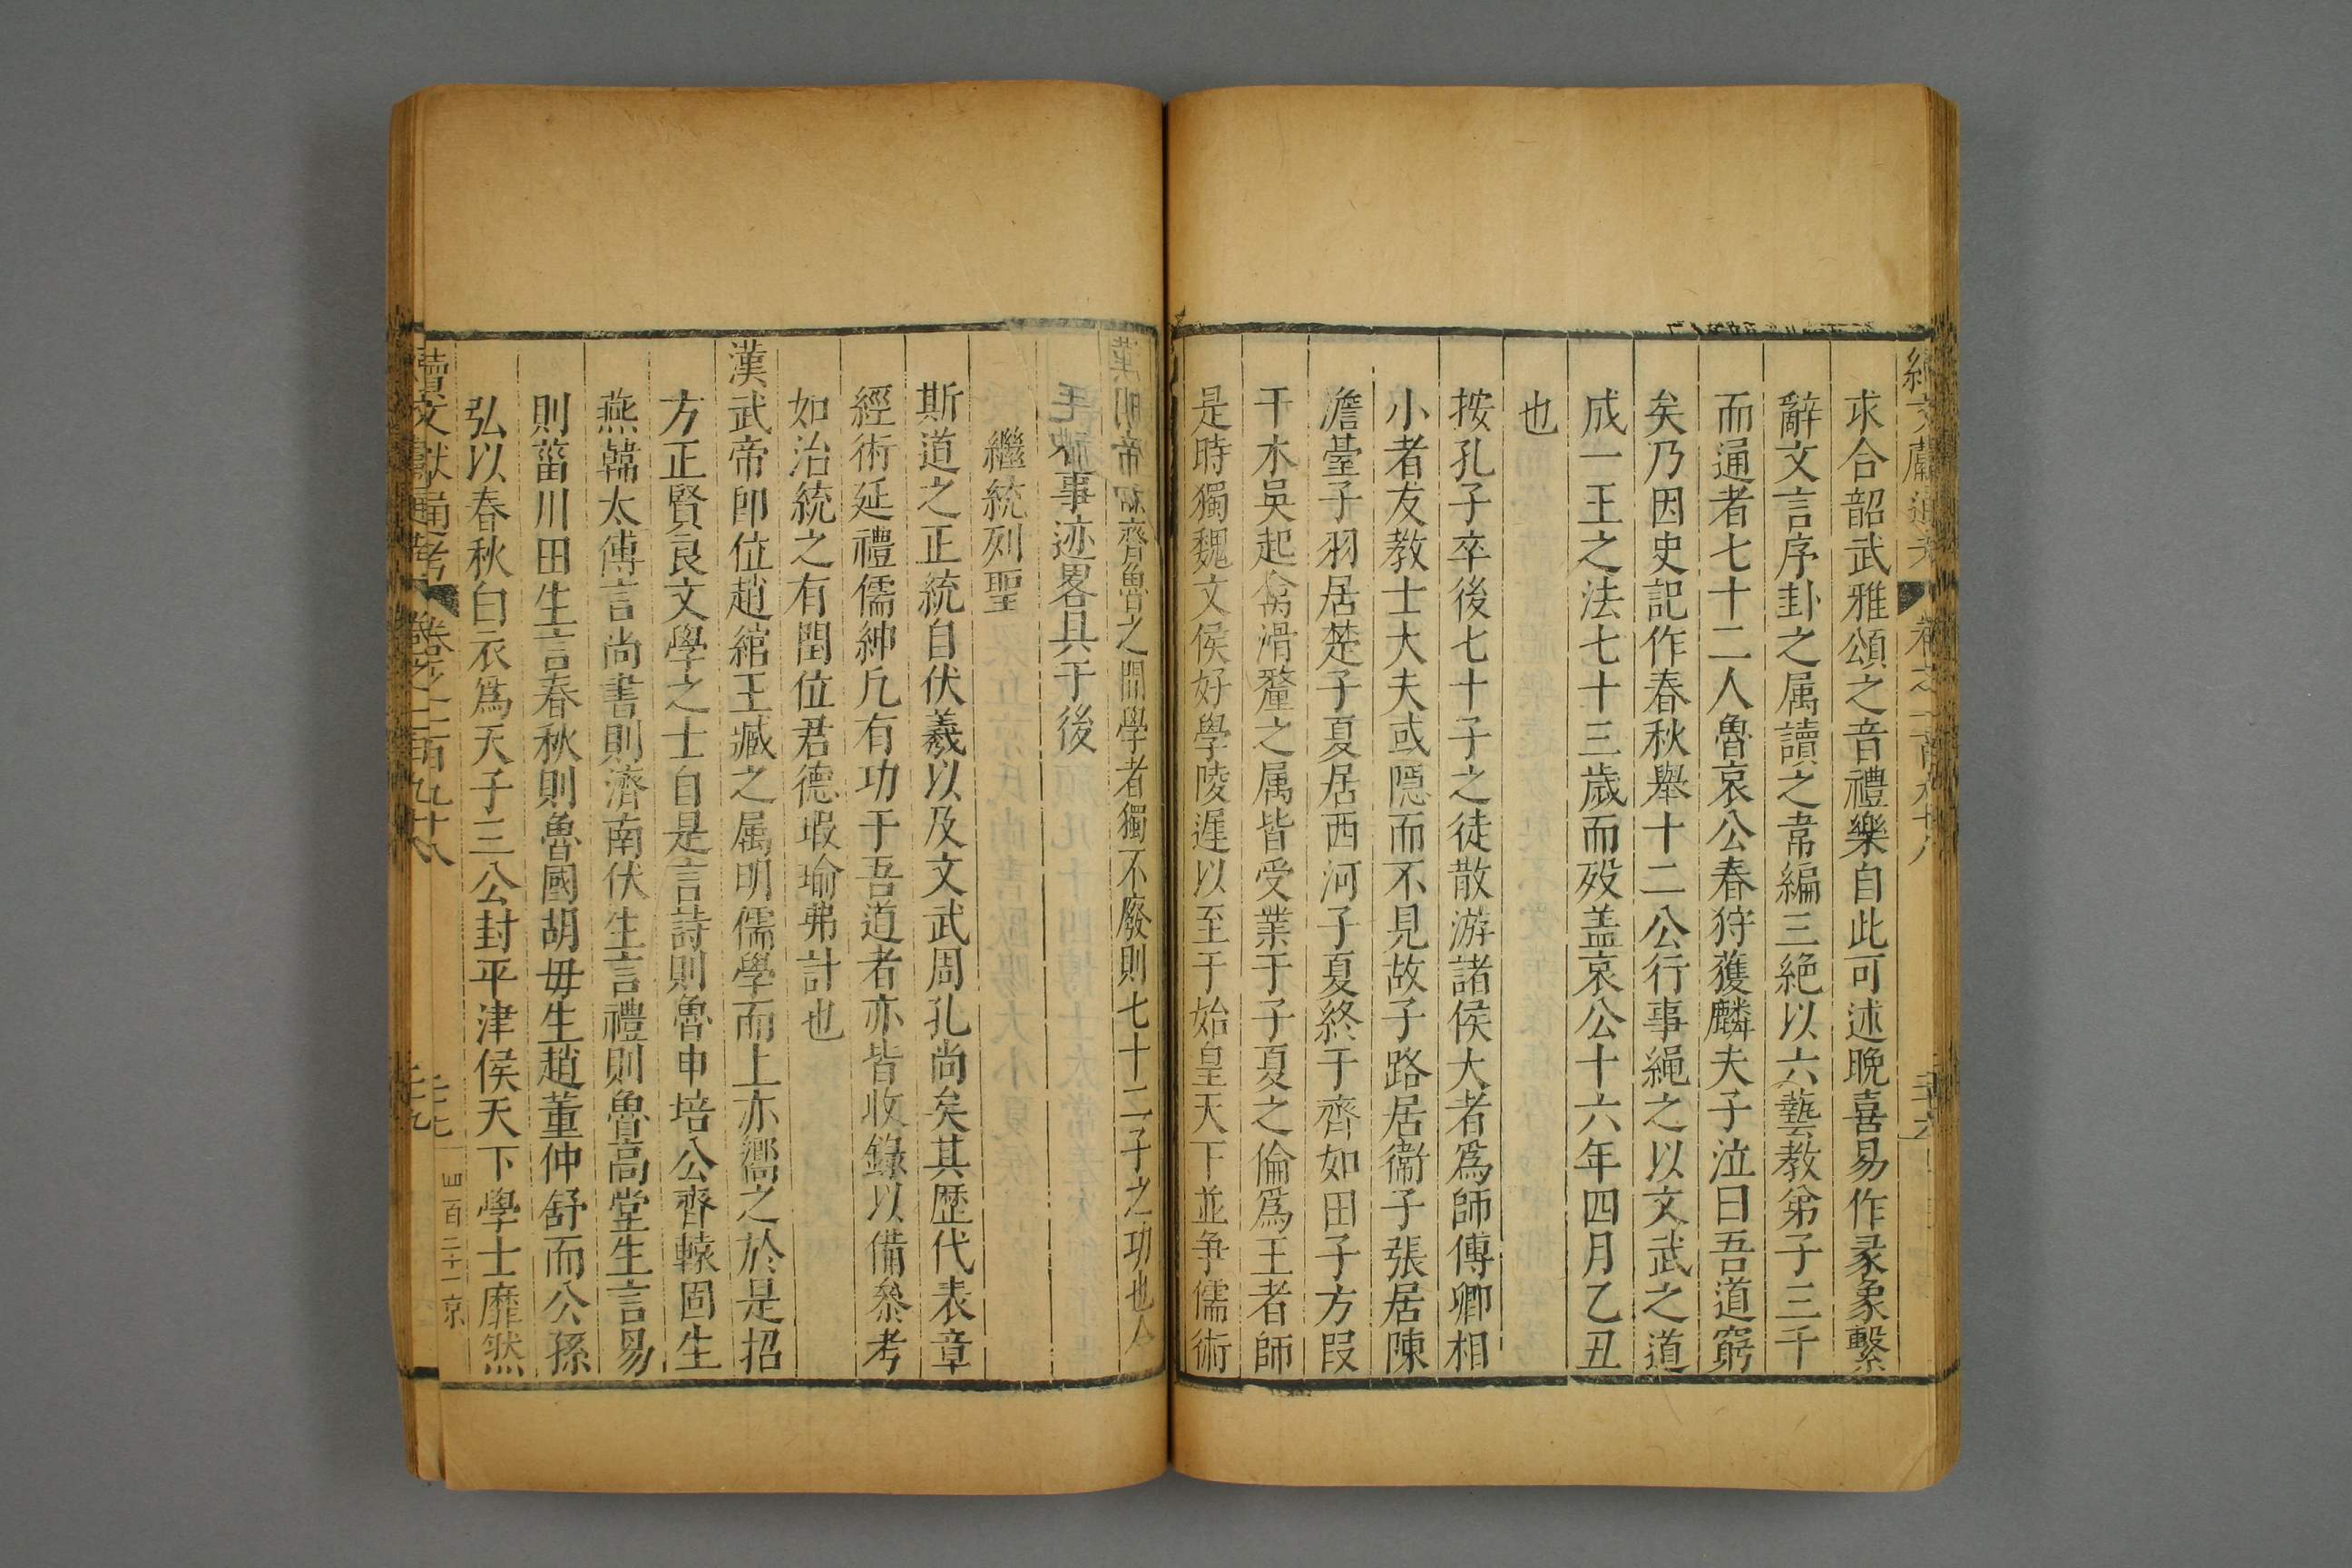 續文獻通考 卷之一百九十八 三十六
求合韶武雅頌之音禮樂自此可述晚喜易作彖象繫
辭文言序卦之属讀之韋編三絶以六藝教弟子三千
而通者七十二人魯哀公春狩獲麟夫子泣曰吾道窮
矣乃因史記作春秋舉十二公行事繩之以文武之道
成一王之法七十三歲而殁盖哀公十六年四月乙丑
也
按孔子卒後七十子之徒散游諸侯大者爲師傅卿相
小者友教士大夫或隱而不見故子路居衞子張居陳
澹臺子羽居楚子夏居西河子夏終于齊如田子方叚
干木吳起禽滑釐之属皆受業于子夏之倫爲王者師
是時獨魏文侯好學陵遲以至于始皇天下並争儒術
齊魯之間學者獨不廢則七十二子之功也
事迹畧具于後
繼統列聖
斯道之正統自伏羲以及文武周孔尚矣其歴代表章
經術延禮儒紳凡有功于吾道者亦皆收錄以備叅考
如治統之有閏位君德瑕瑜弗計也
漢武帝卽位趙綰王臧之属明儒學而上亦嚮之於是招
方正賢良文學之士自是言詩則魯申培公齊轅固生
燕韓太傅言尚書則濟南伏生言禮則魯高堂生言易
則菑川田生言春秋則魯國胡毋生趙董仲舒而公孫
弘以春秋白衣爲天子三公封平津侯天下學士靡然
續文獻通考 卷之一百九十八 三十七 四百二十一 京